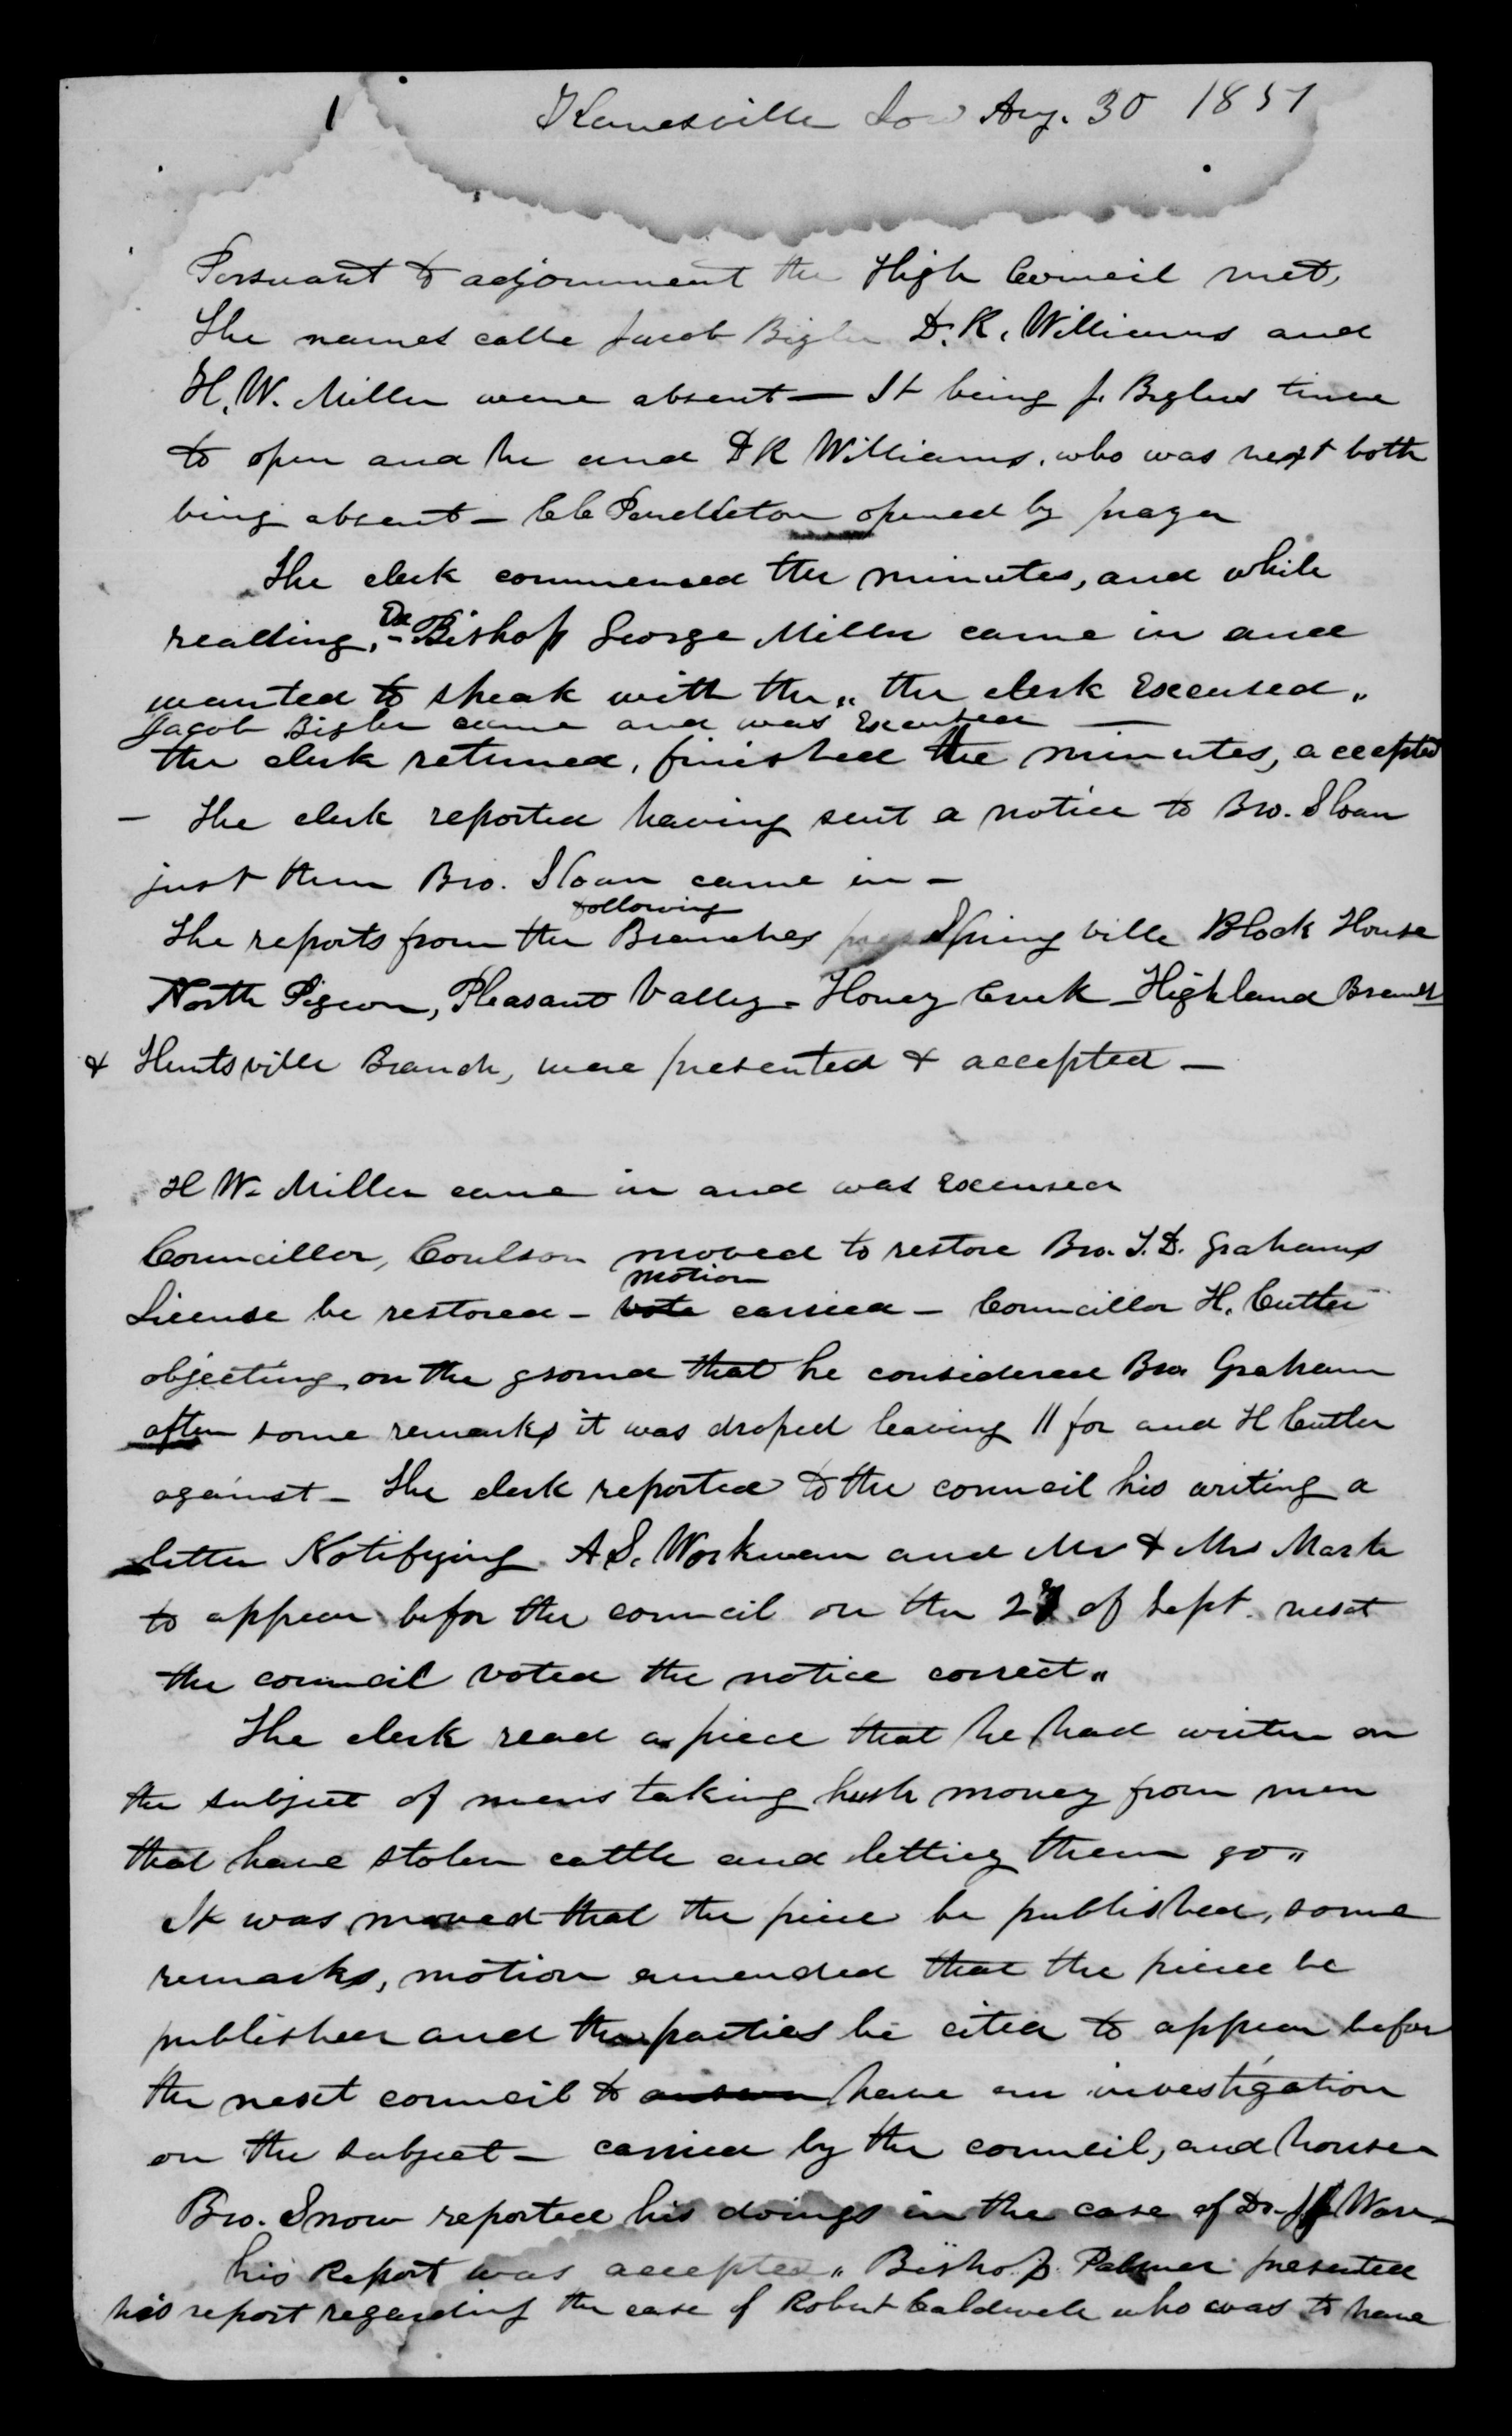 1 Kanesville Iow Aug. 30 1851
Persuant to adjornment the High Council met,
The names calle Jacob Bigler D. K. Williams and
H. W. Miller were absent — It being J. Biglers time
to open and he and D K Williams, who was next both
being absent — C C Pendleton opened by prayer
The clerk commenced the minutes, and while
reading, Ex - Bishop George Miller came in and
wanted to speak with the „ the clerk Excused „
Jacob Bigler came and was Excused —
the clerk returned, finished the minutes, accepted
— The clerk reported having sent a notice to Bro. Sloan
just then Bro. Sloan came in —
following
The reports from the Branches Springville Block House
North Pigeon, Pleasant Valley - Honey Creek - Highland Branch
& Huntsville Branch, were presented & accepted —
H W. Miller came in and was Excused
Councillor, Coulson moved to restore Bro. T. D. Grahams
motion
License be restored — vote carried — Councillor H. Cutler
objecting on the ground that he considered Bro Graham
after some remarks it was droped leaving 11 for and H Cutler
against — The clerk reported to the council his writing a
letter Notifying A. S. Workman and Mr & Mrs Marte
to appear befor the council on the 27 of Sept. next
the council voted the notice correct „
The clerk read a piece that he had writen on
the subject of mens taking hush money from men
that have stolen cattle and letting them go „
It was moved that the piece be published, some
remarks, motion amended that the piece be
published and the parties be cited to appear befor
the next council to answer have an investigation
on the subject — carried by the council, and house
Bro. Snow reported his doings in the case of Dr. Ware
his Report was accepted „ Bishop Palmer presented
his report regarding the case of Robert Caldwell who was to have